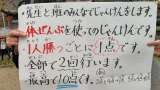 ・先生と隊のみんなでじゃんけんをします。
・体ぜんぶを使ってのじゃんけんです。
・1人勝つごとに1点です。
・全部で2回行います。
・最高で10点です。